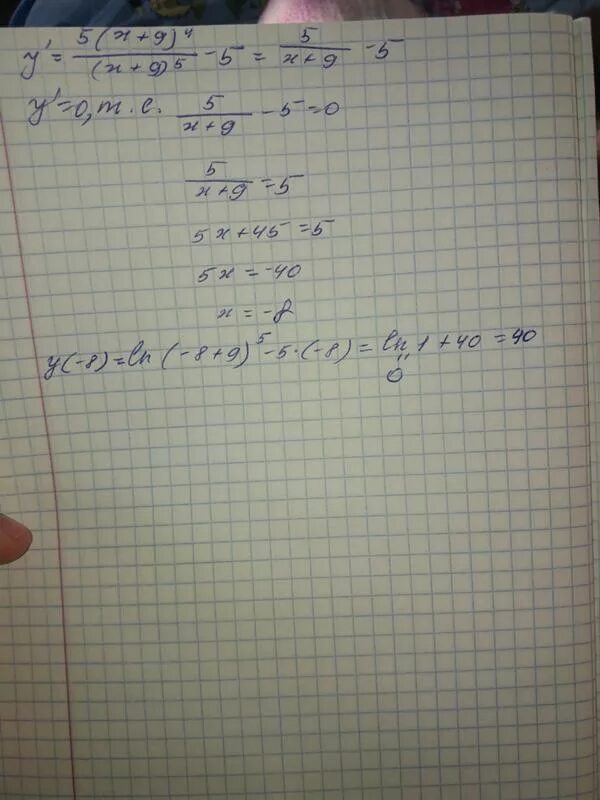 y' = 5(x+9)⁴/(x+9)⁵ - 5 = 5/(x+9) - 5
y'=0, т.е. 5/(x+9) - 5 = 0
5/(x+9) = 5
5x+45=5
5x = -40
x = -8
y(-8) = ln(-8+9)⁵ - 5·(-8) = ln 1 + 40 = 40
"
0